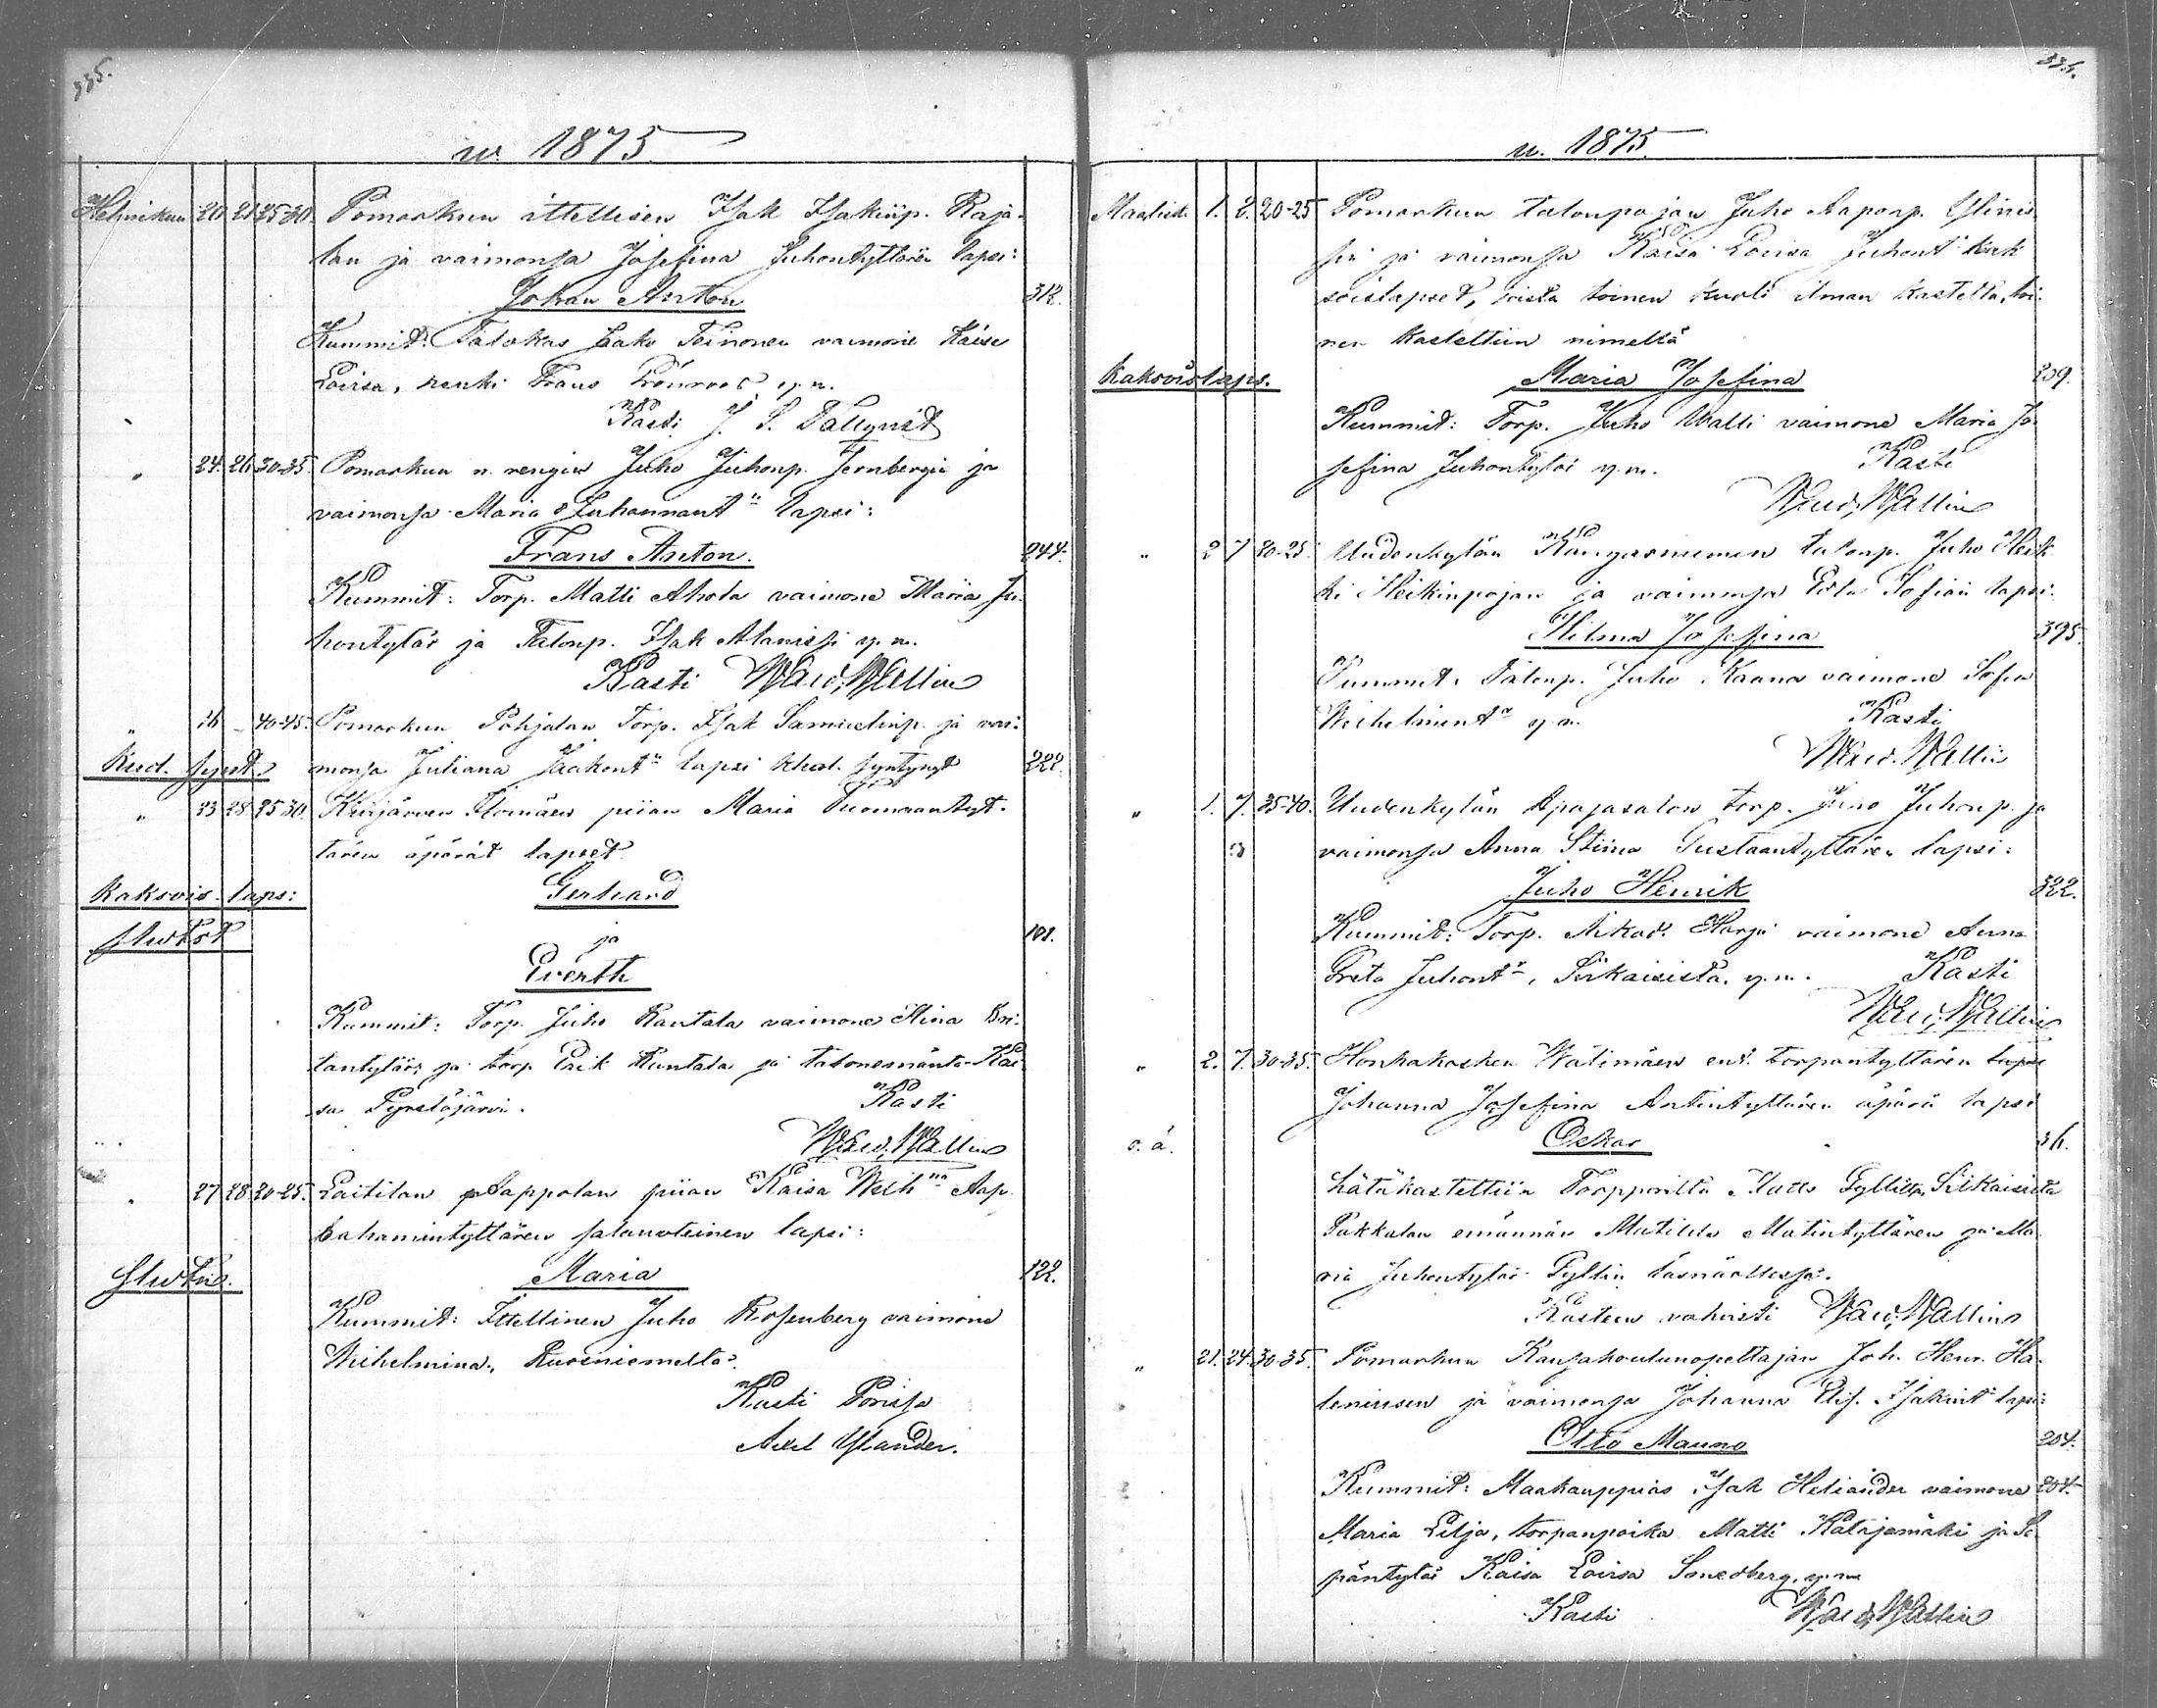 335.
w. 1875
Helmikuu 20 21 25-30. Pomarkun ittellisen Isak Isakinp. Raja-
lan ja vaimonsa Josefina Juhontyttären lapsi:
Johan Anton 312.
Kummit: Talokas Jaako Teinonen vaimone Kaisa
Lovisa, renki Frans Grönroos y. m.
Kasti J. S. Tallqvist
" 24. 26 30-35. Pomarkun n. rengin Juho Juhonp. Jernbergin ja
vaimonsa Maria Juhannant:n lapsi:
Frans Anton. 244.
Kummit: Torp. Matti Ahola vaimone Maria Ju-
hontytär ja Talonp. Isak Alanissi y. m.
Kasti Wald. Wallin
" 26 40-45. Pomarkun Pohjalan Torp. Isak Samuelinp. ja vai-
Kuol. synt. monsa Juliana Jaakont:n lapsi khol. syntynyt 222.
" 23 28 25-30. Kiujärven Ilomäen piian Maria Tuomaantyt-
tären äpärät lapset
Kaksois-laps: Gerhard
ja 101.
Everth
Kummit: Torp. Juho Rantala vaimone Stina Kri-
tantytär, ja torp. Erik Rantala ja talonemäntä Kai-
sa Pyrstöjärvi.
Kasti
Wald. Wallin
" 27 28 20-25. Laitilan Sappolan piian Kaisa Wilh:na Aap-
rahamintyttären salavoteinen lapsi:
Maria 122.
Kummit: Ittellinen Juho Rosenberg vaimone
Wilhelmina, Ruosniemeltä.
Kasti Porissa
Axel Ylander.
336.
w. 1875.
Maalisk. 1. 2. 20-25 Pomarkun talonpojan Juho Aaponp. Ylinis-
sin ja vaimonsa Kaisa Lovisa Juhont:n kak-
soislapset, joista toinen kuoli ilman kastetta, toi-
nen kastettiin nimeltä
Kaksoislaps. Maria Josefina 209.
Kummit: Torp. Juho Walli vaimone Maria Jo-
sefina Juhontytär y. m. Kasti
Wald. Wallin
" 2 7 20-25. Uudenkylän Kangasniemen talonp. Juho Heik-
ki Heikinpojan ja vaimonsa Eeva Sofian lapsi:
Hilma Josefina 395.
Kummit: Talonp. Juho Kaana vaimone Sofia
Wilhelmint:r y. m. Kasti
Wald. Wallin
" 1. 7. 35-40. Uudenkylän Apajasalon torp. Juho Juhonp. ja
vaimonsa Anna Stiina Gustaantyttären lapsi:
Juho Henrik 322.
Kummit: Torp. Mikael Harju vaimone Anna
Greta Juhont:r, Siikaisista, y. m. Kasti
Wald. Wallin
" 2. 7. 30-35. Honkakosken Wälimäen ent. torpantyttären
Johanna Josefina Antintyttären äpärä lapsi
o. ä. Oskar 36.
hätäkastettiin Torpparilta Matts Gylliltä, Siikaisista
Pakkalan emännän Matilda Matintyttären ja Ma-
ria Juhontytär Gyllin läsnäollessa.
Kasteen vahvisti Wald. Wallin
" 21. 24. 30-35. Pomarkun Kansakoulunopettajan Joh. Henr. Ha-
leniusen ja vaimonsa Johanna Elis. Isakint:n lapsi:
Otto Mauno 204.
Kummit: Maakauppias Isak Heliander vaimone 204.
Maria Lilja, torpanpoika Matti Katajamäki ja Se-
päntytär Kaisa Lovisa Smedberg, y. m.
Kasti Wald. Wallin